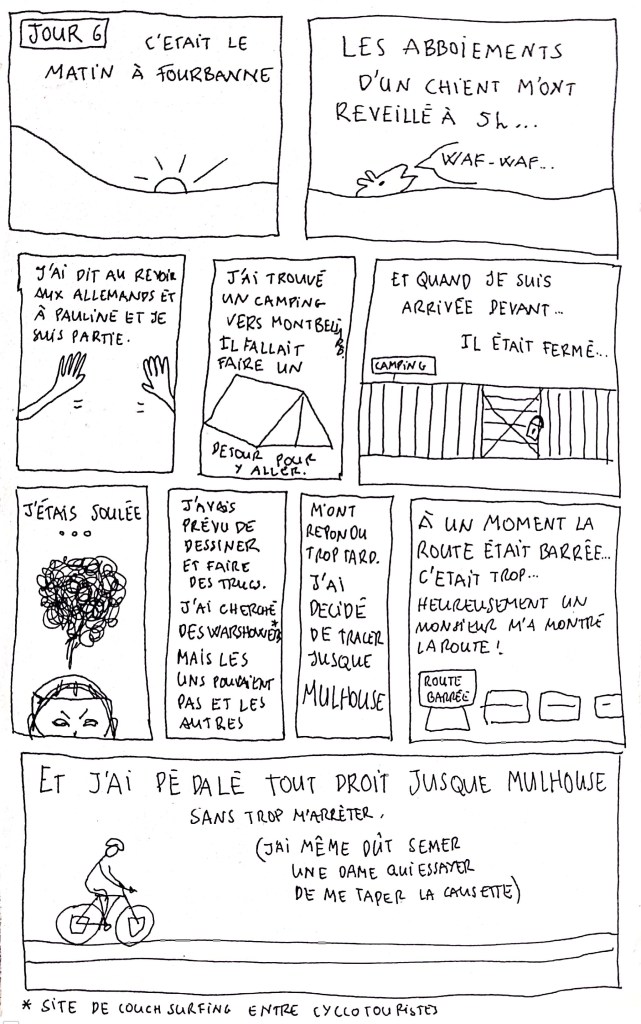 JOUR 6
C'ETAIT LE
MATIN À FOURBANNE
LES ABBOIEMENTS
D'UN CHIENT M'ONT
REVEILLÉ À 5h...
WAF-WAF...
J'AI DIT AU REVOIR
AUX ALLEMANDS ET
À PAULINE ET JE
SUIS PARTIE.
J'AI TROUVÉ
UN CAMPING
VERS MONTBELIARD.
IL FALLAIT
FAIRE UN
DETOUR POUR
Y ALLER.
ET QUAND JE SUIS
ARRIVÉE DEVANT...
IL ÉTAIT FERMÉ...
CAMPING
J'ÉTAIS SOULÉE
...
J'AVAIS
PRÉVU DE
DESSINER
ET FAIRE
DES TRUCS.
J'AI CHERCHÉ
DES WARSHOWERS*
MAIS LES
UNS POUVAIENT
PAS ET LES
AUTRES
M'ONT
REPONDU
TROP TARD.
J'AI
DECIDÉ
DE TRACER
JUSQUE
MULHOUSE
À UN MOMENT LA
ROUTE ÉTAIT BARRÉE...
C'ETAIT TROP...
HEUREUSEMENT UN
MONSIEUR M'A MONTRÉ
LA ROUTE !
ROUTE
BARRÉE
ET J'AI PÉDALÉ TOUT DROIT JUSQUE MULHOUSE
SANS TROP M'ARRÊTER.
(J'AI MÊME DÛT SEMER
UNE DAME QUI ESSAYER
DE ME TAPER LA CAUSETTE)
* SITE DE COUCH SURFING ENTRE CYCLOTOURISTES